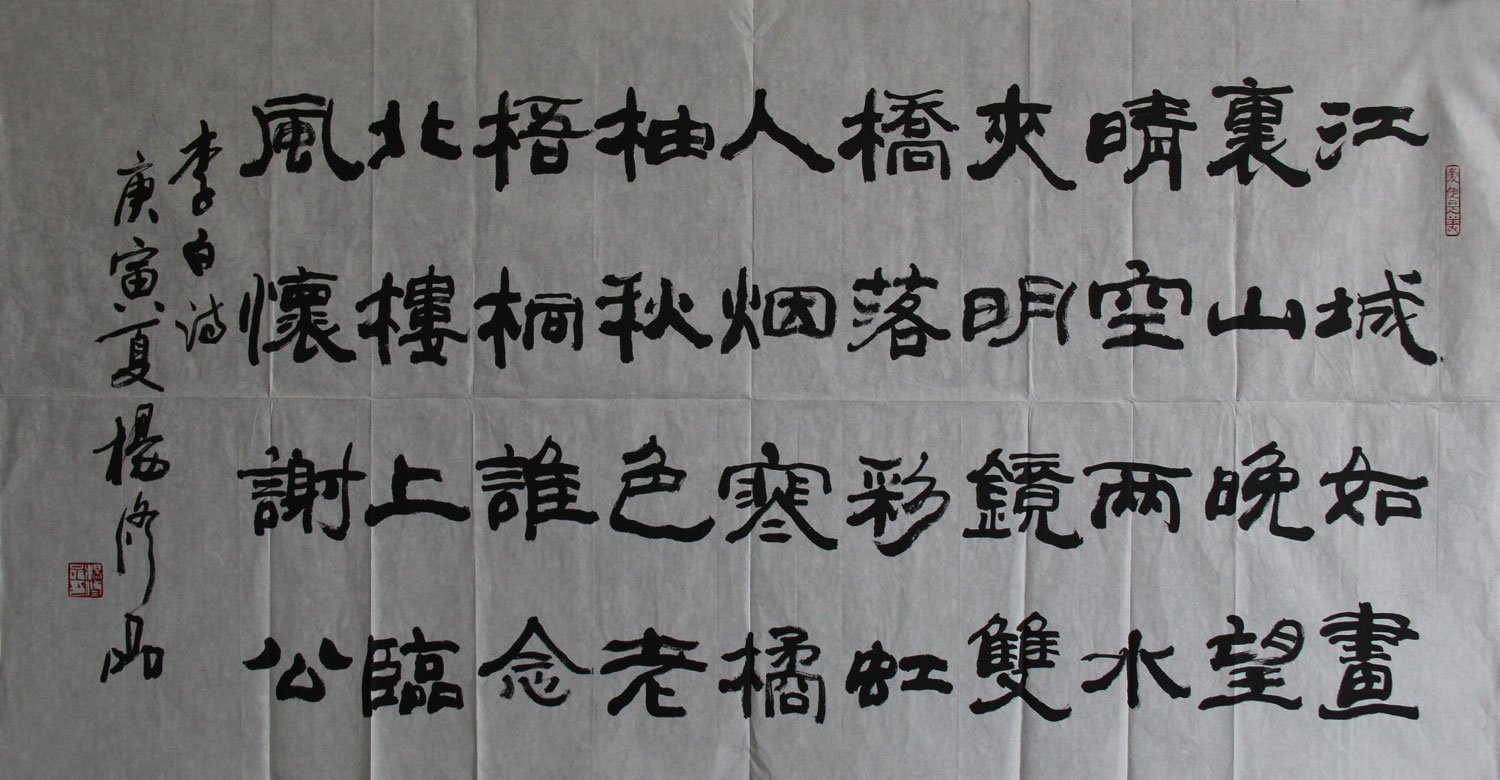 江城如畫
裏山晚望
晴空兩水
夾明鏡雙
橋落彩虹
人烟寒橘
柚秋色老
梧桐誰念
北樓上臨
風懷謝公
李白詩
庚寅夏楊修品